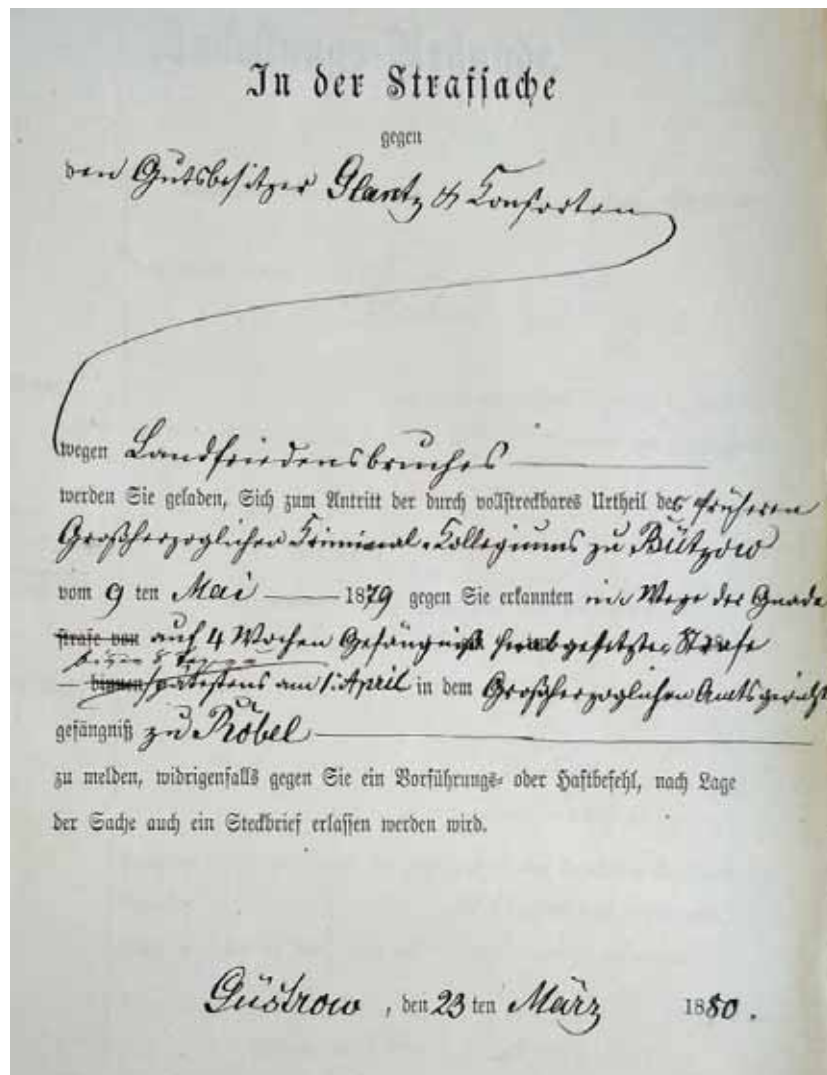 In der Strafsache
gegen
den Gutsbesitzer Glantz & Konsorten
wegen Landfriedensbruches
werden Sie geladen, Sich zum Antritt der durch vollstreckbares Urtheil des früheren
Großherzoglichen Kriminal-Kollegiums zu Bützow
vom 9 ten Mai 1879 gegen Sie erkannten im Wege der Gnade
strafe von auf 4 Wochen Gefängniß herabgesetzten Strafe
binnen spätestens am 1. April in dem Großherzoglichen Amtsgerichts
gefängniß zu Röbel
zu melden, widrigenfalls gegen Sie ein Vorführungs- oder Haftbefehl, nach Lage
der Sache auch ein Steckbrief erlassen werden wird.
Güstrow, den 23 ten März 1880.